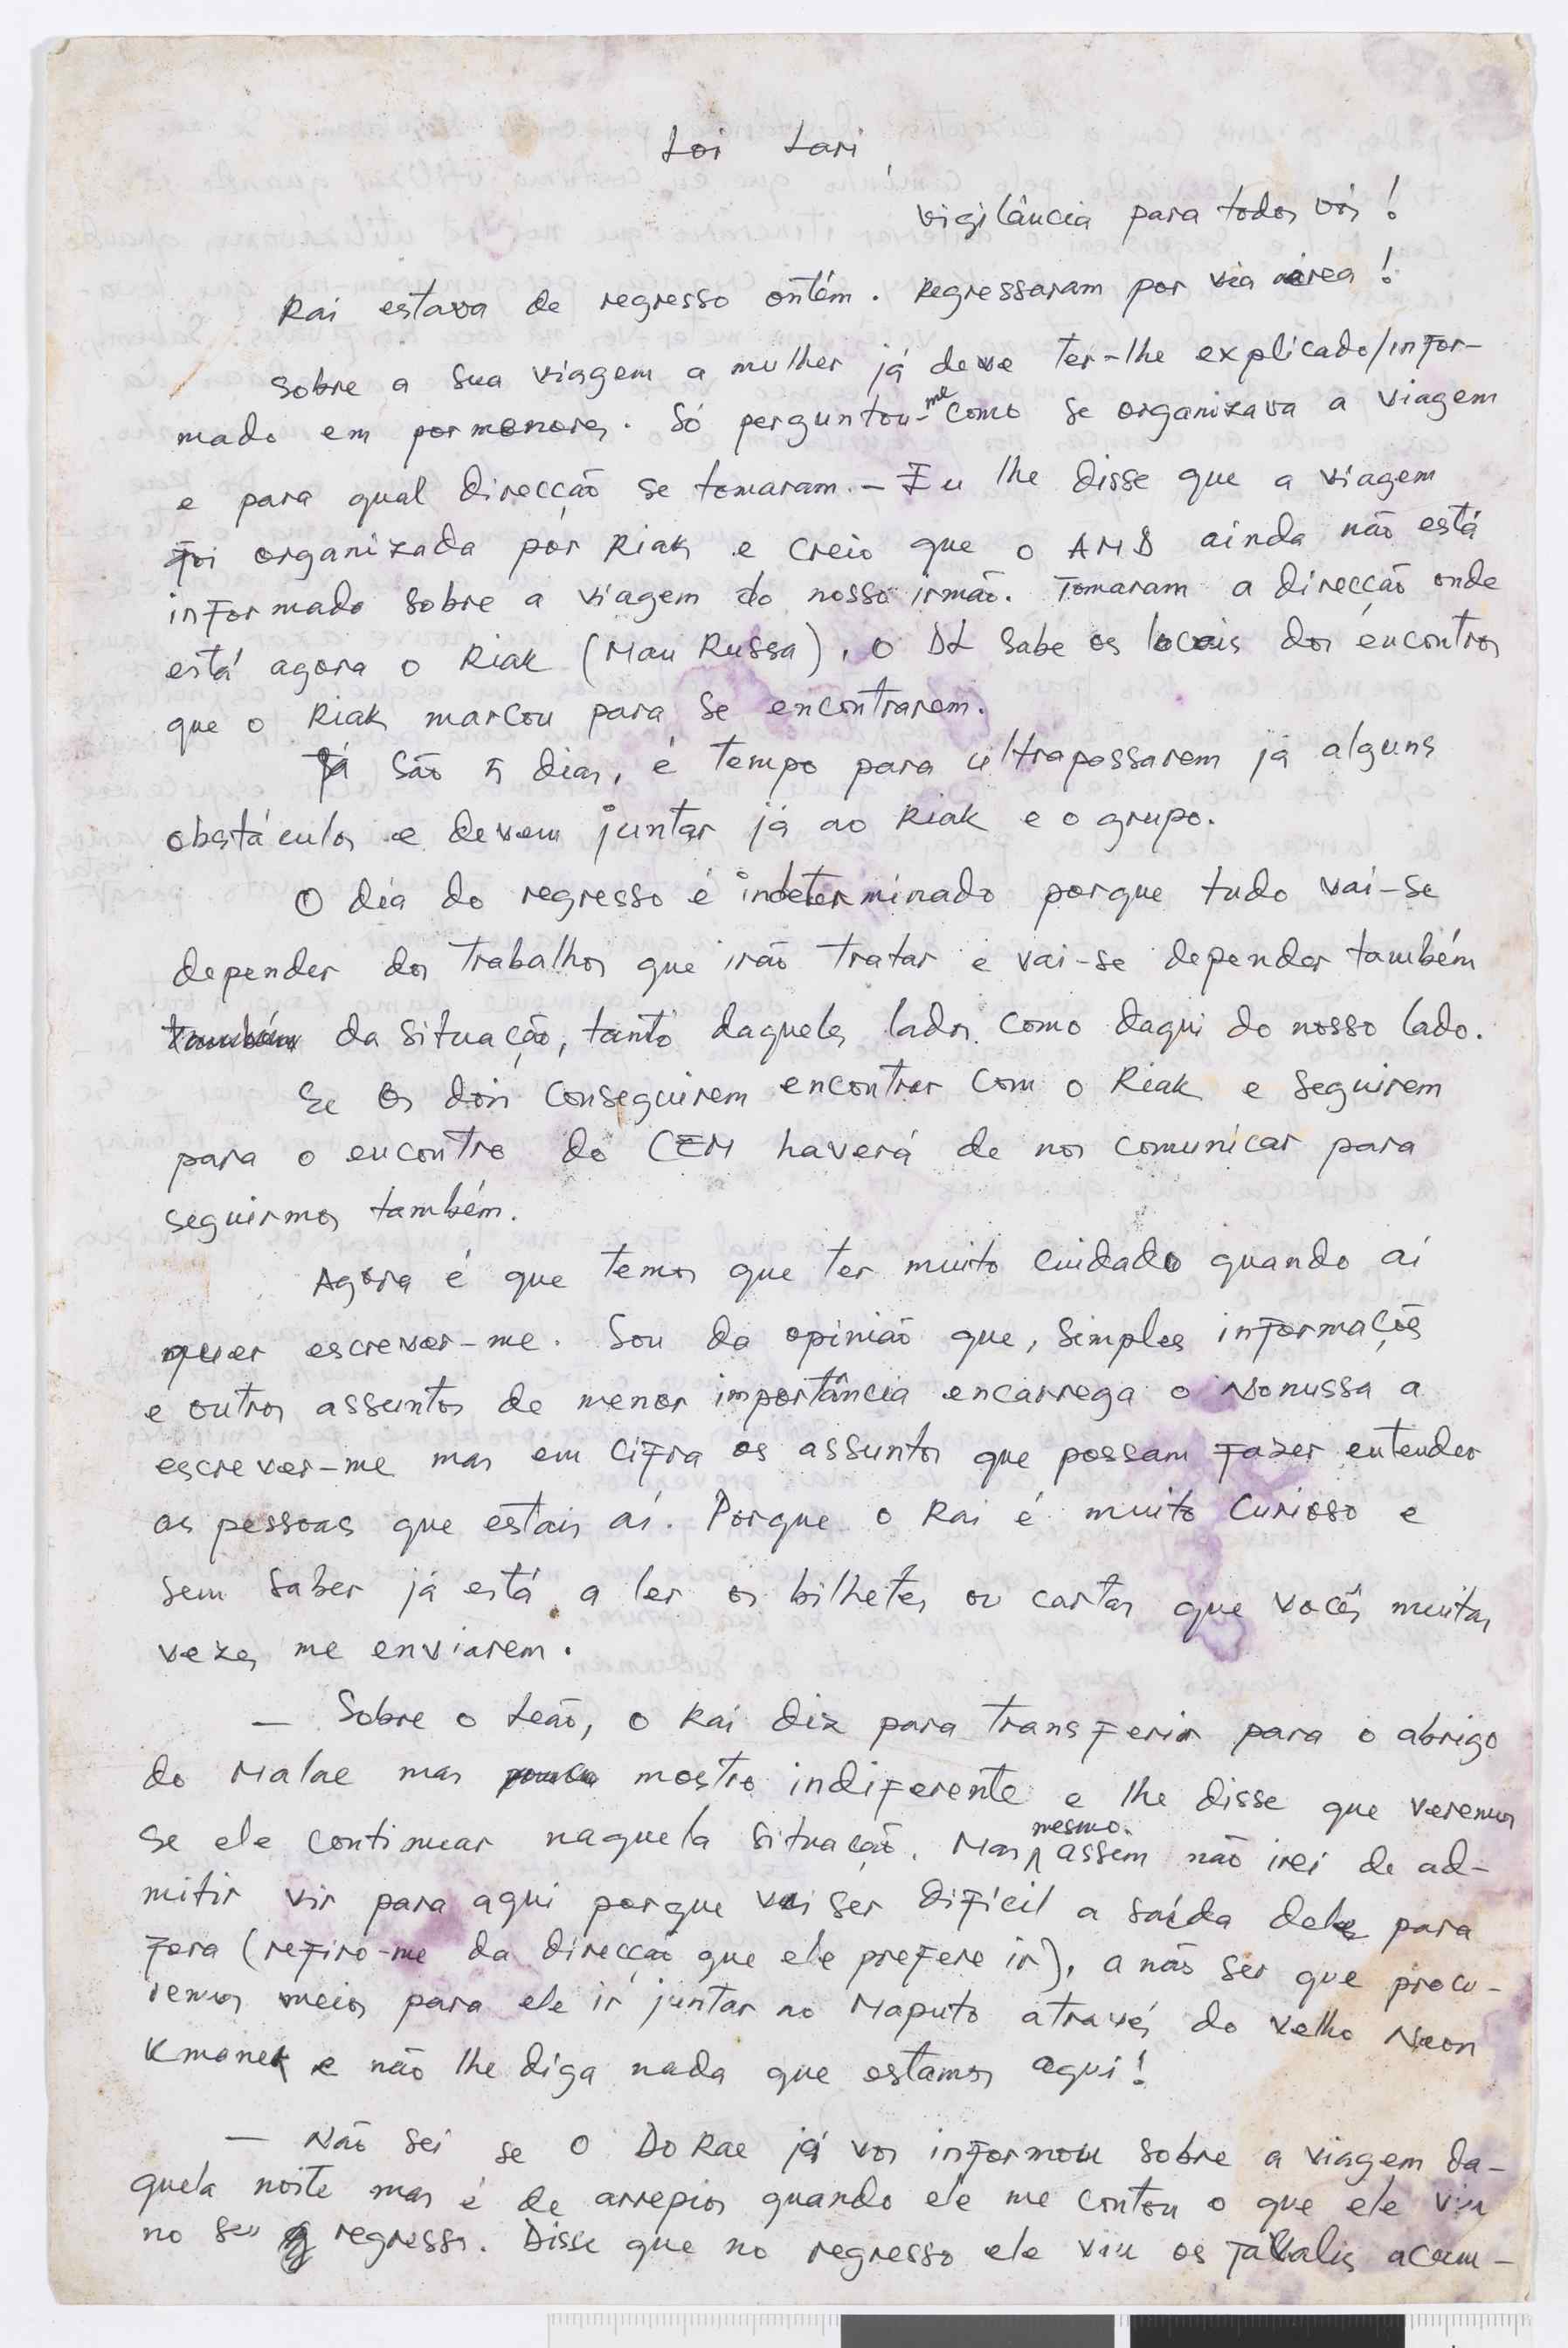 Loi Lari,
vigilância para todos vós!
Rai estava de regresso ontém. Regressaram por via aérea!
Sobre a sua viagem a mulher já deve ter-lhe explicado/infor-
mado em pormenores. Só perguntou-me como se organizava a viagem
e para qual direcção se tomaram. — Eu lhe disse que a viagem
foi organizada pór Riak e creio que o AMS ainda não está
informado sobre a viagem do nosso irmão. Tomaram a direcção onde
está agora o Riak (Mau Russa), o DL sabe os locais dos encontros
que o Riak marcou para se encontrarem.
Já são 5 dias, é tempo para ultrapassarem já alguns
obstáculos e devem juntar já ao Riak e o grupo.
O dia do regresso é indeterminado porque tudo vai-se
depender dos trabalhos que irão tratar e vai-se depender também
da situação, tanto daqueles lados como daqui do nosso lado.
Se os dois conseguirem encontrar com o Riak e seguirem
para o encontro do CEM haverá de nos comunicar para
seguirmos também.
Agora é que temos que ter muito cuidado quando aí
quer escrever-me. Sou da opinião que, simples informações
e outros assuntos de menor importância encarrega o Nonussa a
escrever-me mas em cifra os assuntos que possam fazer entender
as pessoas que estais aí. Porque o Rai é muito curioso e
sem saber já está a ler os bilhetes ou cartas que vocês muitas
vezes me enviarem.
— Sobre o Leão, o Rai diz para transferir para o abrigo
do Malae mas mostro indiferente e lhe disse que veremos
se ele continuar naquela situação. Mas mesmo assem não irei de ad-
mitir vir para aqui porque vai ser difícil a saída dele para
fora (refiro-me da direcção que ele prefere ir), a não ser que procu-
remos meios para ele ir juntar no Maputo através do velho Neon
Kmanek e não lhe diga nada que estamos aqui!
— Não sei se o Do Rae já vos informou sobre a viagem da-
quela noite mas é de arrepios quando ele me contou o que ele viu
no seu regresso. Disse que no regresso ele viu os javalis acam-